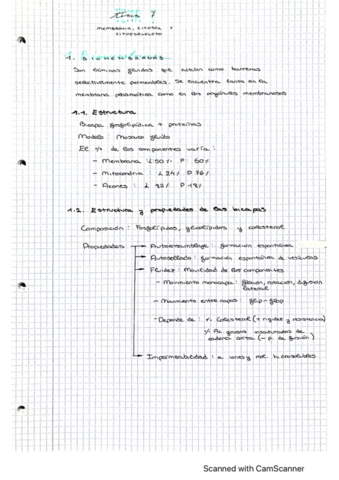 tema 7
MEMBRANA, CITOSOL Y
CITOESQUELETO
1. BIOMEMBRANAS
Son láminas fluidas que actúan como barreras
selectivamente permeables. Se encuentra tanto en la
membrana plasmática como en los orgánulos membranosos
1.1. Estructura
Bicapa fosfolipídica + proteínas
Modelo: Mosaico fluido
El % de los componentes varía:
- Membrana L 50% P: 50%
- Mitocondria L 24% P 76%
- Axones: L 82% P 18%
1.2. Estructura y propiedades de las bicapas
Composición: Fosfolípidos, glucolípidos y colesterol
Propiedades → Autoensamblaje: formación espontánea
→ Autosellado: formación espontánea de vesículas
→ Fluidez: Movilidad de los componentes
- Movimiento monocapa: flexión, rotación, difusión
lateral
- Movimiento entre capas: flip-flop
- Depende de: % Colesterol (+ rigidez y resistencia)
% Ac. grasos insaturados de
cadena corta (- p. de fusión)
→ Impermeabilidad: a iones y mol. hidrosolubles
Scanned with CamScanner